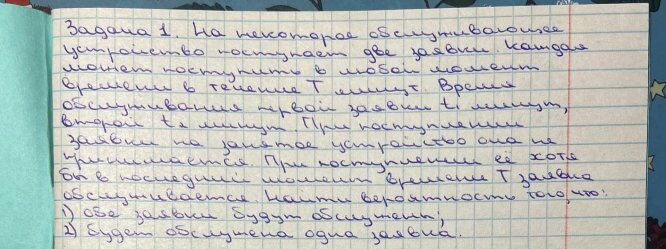 Задача 1. На некоторое обслуживающее
устройство поступает две заявки. Каждая
может поступить в любой момент
времени в течение T минут. Время
обслуживания первой заявки t₁ минут,
второй t₂ минут. При поступлении
заявки на занятое устройство она не
принимается. При поступлении её хотя
бы в последний момент времени T заявка
обслуживается. Найти вероятность того, что:
1) обе заявки будут обслужены;
2) будет обслужена одна заявка.